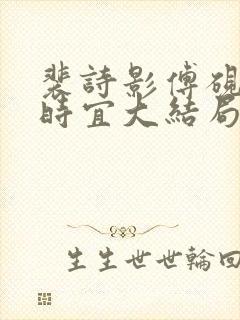 裴詩影傅硯
時宜大結局
生生世世輪回